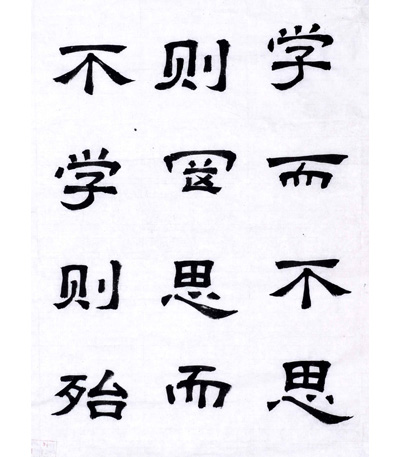 学而不思
则罔思而
不学则殆